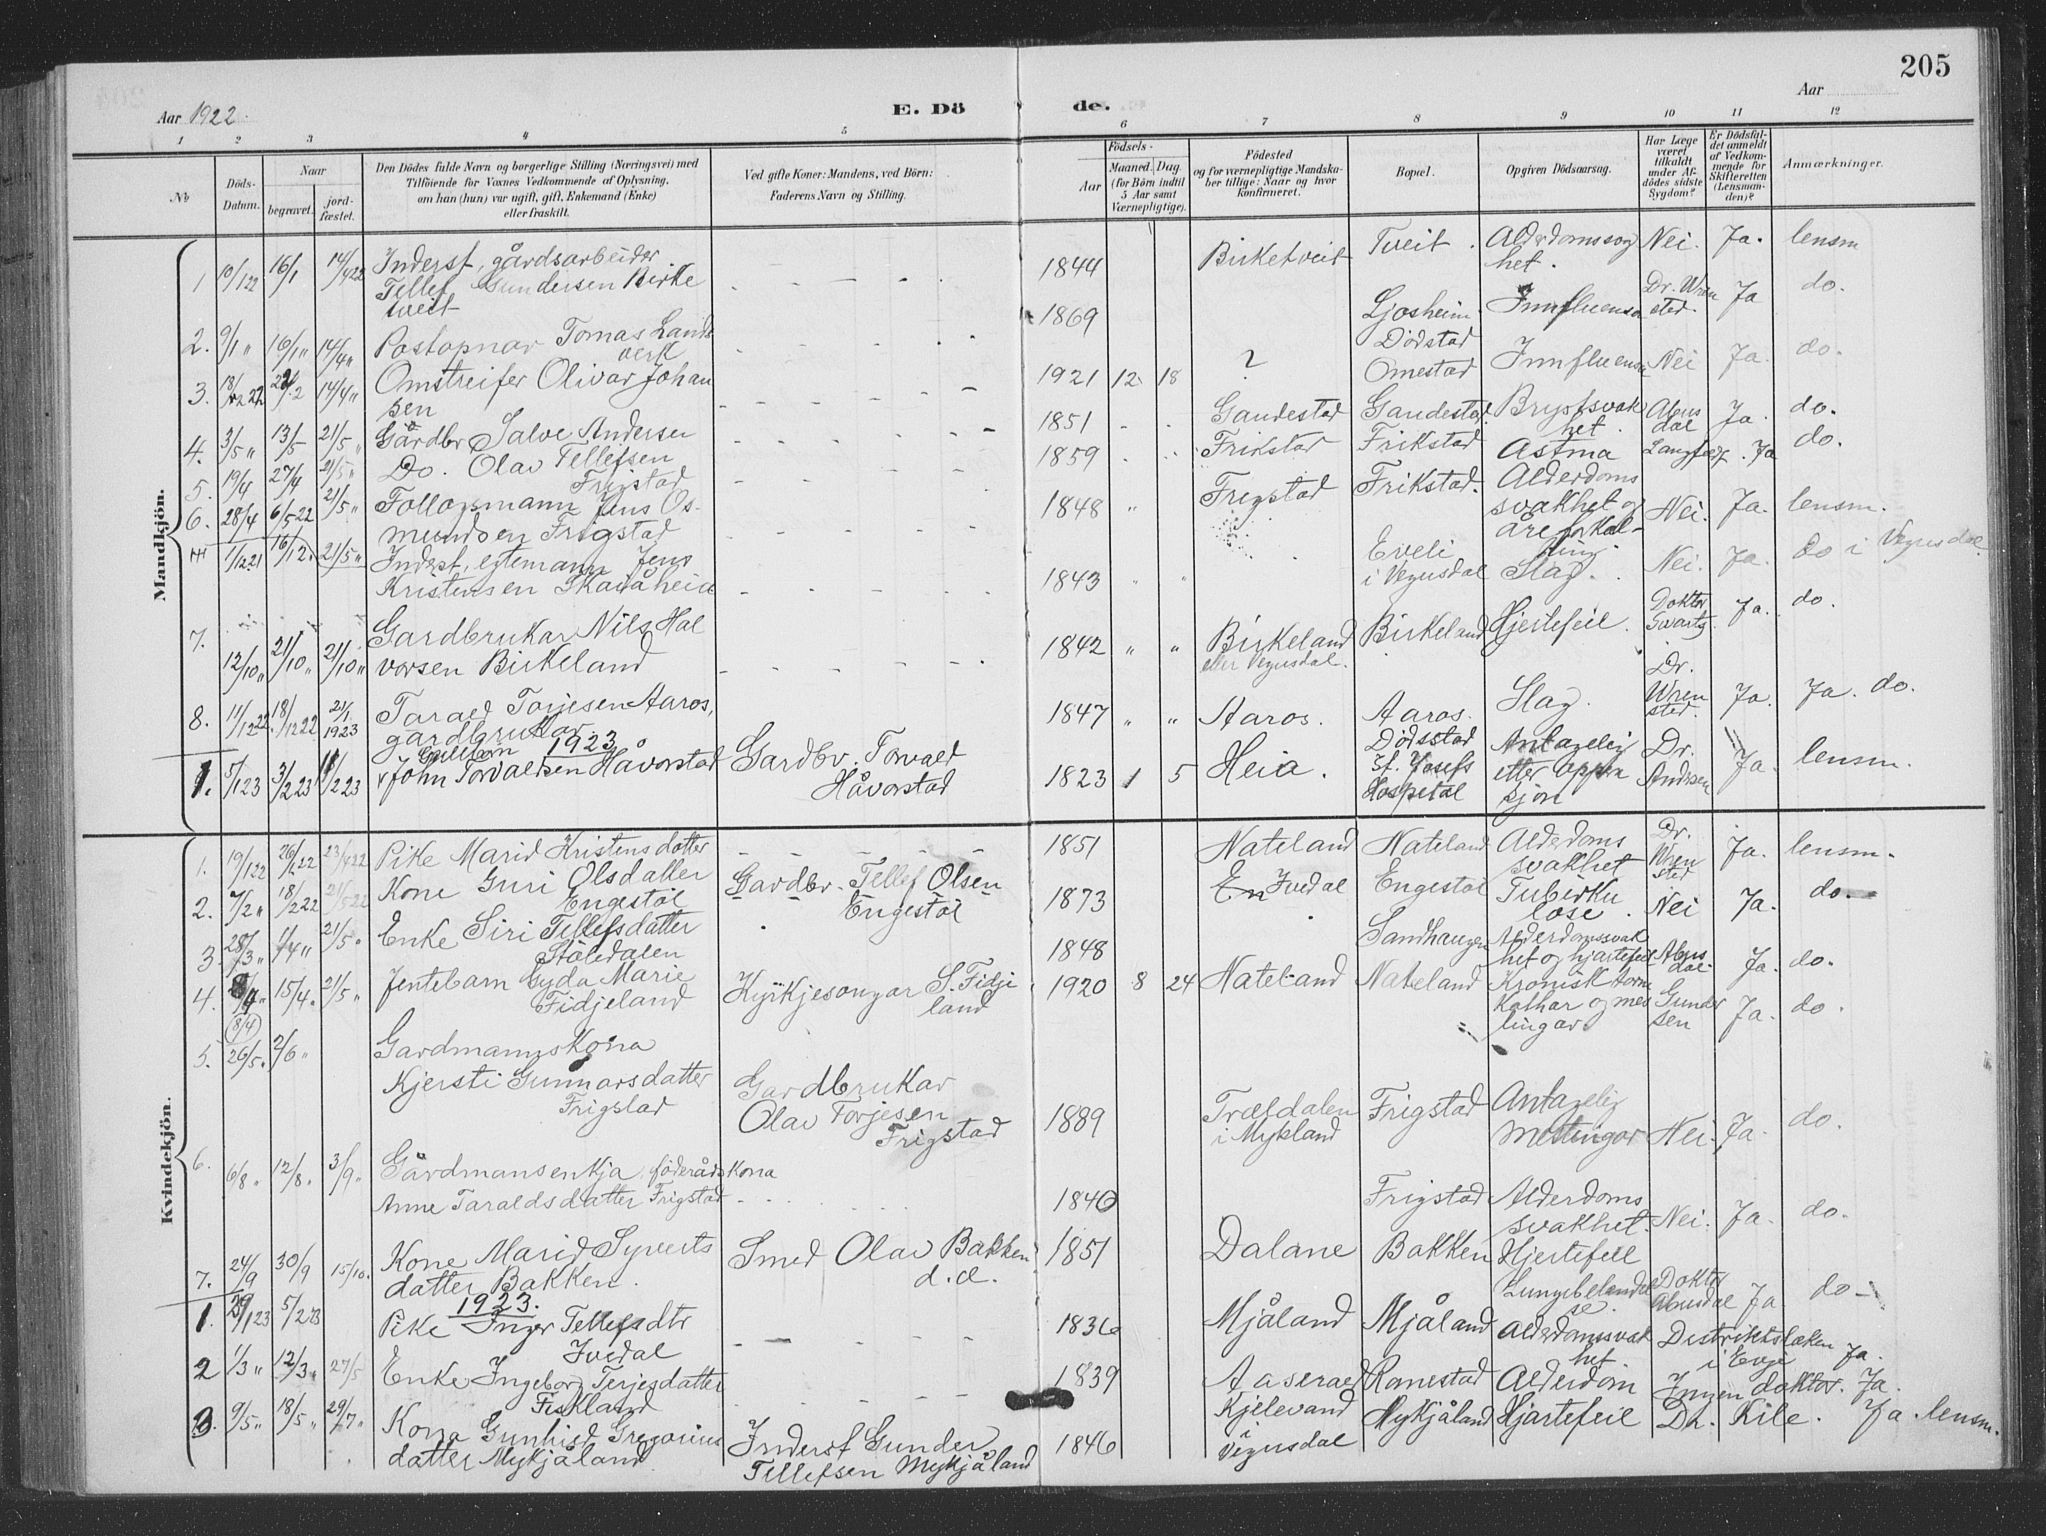 205
Aar 1922.
E. Dö de.
Aar
1 2 3 4 5 6 7 8 9 10 11 12
No
Döds-Datum.
Naar
begravet.
jord-fæstet.
Den Dödes fulde Navn og borgerlige Stilling (Næringsvei) med
Tilföiende för Voxnes Vedkommende af Oplysning,
om han (hun) var ugift, gift, Enkemand (Enke)
eller fraskilt.
Ved gifte Koner: Mandens, ved Börn:
Faderens Navn og Stilling.
Födsels-
Aar
Maaned. Dag.
(for Börn indtil
5 Aar samt
Værnepligtige).
Födested
og for værnepligtige Mandska-
ber tillige: Naar og hvor
konfirmeret.
Bopæl.
Opgiven Dödsaarsag.
Har Læge
været
tilkaldt
under Af-
dödes sidste
Sygdom?
Er Dödsfal-
det anmeldt
af Vedkom-
mende for
Skifteretten
(Lensman-
den)?
Anmærkninger.
Mandkjön.
1 10/1 22 16/1 14/4 22 Inderst, gårdsarbeider
Tellef Gundersen Birke
tveit
1844 Birketveit Tveit. Alderdomssvag
het. Nei. Ja. lensm
2. 9/1 " 16/1 " 14/4 " Postopnar Tomas Lands
verk
1869 Ljosheim Dödstad Innfluensa Dr. Wren
sted. Ja do.
3. 18/12 22 22/2 14/4 " Omstreifer Olivar Johan
sen
1921 12 18 ? Omestad Innfluensa Nei Ja. do.
4. 3/5 " 13/5 21/5 " Gårdbr Salve Andersen
1851 Gaudestad Gaudestad Brystsvak
het. Abus
dal Ja. do.
5. 19/4 27/4 21/5 " Do. Olav Tellefsen
Frigstad
1859 Frikstad Frikstad Astma Langfeldt. Ja do.
6. 28/4 6/5 22 21/5 " Follogsmann Jens Os-
mundsen Frigstad
1848 " Fregstad Frikstad. Alderdoms
svakhet og
åreforkal-
ning. Nei. Ja. lensm.
1/12 21 16/12. 21/5 " Inderst, egtemann Jens
Kristensen Skaiåheia
1843 " " Eveli
i Vegusdal Slag. Nei. Ja. Do i Vegusdal
7. 12/10 " 21/10 " 21/10 " Gardbrukar Nils Hal
vorsen Birkeland
1842 " " Birkeland
eller Vegusdal. Birkeland Hjertefeil. Doktor
Svartz. Ja. do.
8. 11/12 22. 18/12 22 21/1 1923 Tarald Torjesen Aaros,
gardbrukar
1847 " " Aaros. Aaros. Slag. Dr.
Wren
sted. Ja. Ja. do.
1923
1. 5/1 23 3/2 23 11/2 23 John Torvaldsen Håvorstad Gardbr. Torvald
Håvorstad
1823 1 5 Heia. Dödsstad
St. Josefs
Hospetal Antagelig
etter oppra
sjon Dr.
Andersen Ja. lensm.
Kvindekjön.
1. 19/1 22 26/1 22 23/4 22 Pike Marid Kristensdatter
1851 Nateland Nateland Alderdoms
svakhet Dr.
Wren
sted Ja. lensm.
2. 7/2 " 18/2 22 21/5 22 Kone Guri Olsdatter
Engestöl Gardbr. Tellef Olsen
Engestöl
1873 Ivedal Engestöl Tuberku
lose. Nei Ja. do.
3. 28/3 " 1/4 " 21/5 " Enke Siri Tellefsdatter
Ståledalen
1848 Sandhaugen Alderdomssvak
het og hjartefeil Abus
dal. Ja. do.
4. 8/4 " 15/4. 21/5 " Jentebarn Gyda Marie
Fidjeland Kyrkjesongar S. Fidje
land
(8/4)
1920 8 24 Nateland Nateland Kronisk tarm
kathar og mes
lingar Gunder
sen Ja. do.
5. 26/5. 2/6 " Gardmannskona
Kjersti Gunnarsdatter
Frigstad Gardbrukar
Olav Torjesen
Frigstad
1889 Trældalen
i Mykland Frigstad Antagelig
meslingar Nei. Ja. do.
6. 6/8 " 12/8 " 3/9 " Gårdmansenkja, föderådskona
Anne Taraldsdatter Frigstad
1840 Frigstad Alderdoms
svakhet. Nei. Ja. do.
7. 24/9 30/9 15/10. Kone Marid Syverts
datter Bakken. Smed Olav Bakken
d.e.
1851 Dalane Bakken Hjertefeil
Lungebetendel
se. Doktor
Abusdal Ja do
1923.
1. 29/1 23 5/2 23 Pike Inger Tellefsdtr
Ivedal
1836 Mjåland Mjåland Alderdomssvak
het. Distriktslæken
i Evje Ja.
2 1/3 " 12/3 " 27/5 Enke Ingeborg Terjesdatter
Fiskland
1839 Aaseral Romestad Alderdom Ingen doktor. Ja.
3. 9/5 " 18/5 " 29/7 " Kona Gunhild Gregorius
datter Mykjåland Inderst Gunder
Tellefsen Mykjåland
1846 Kjelevand
i
Vegusdal Mykjåland Hjartefeil Dr. Kile. Ja. lensm.